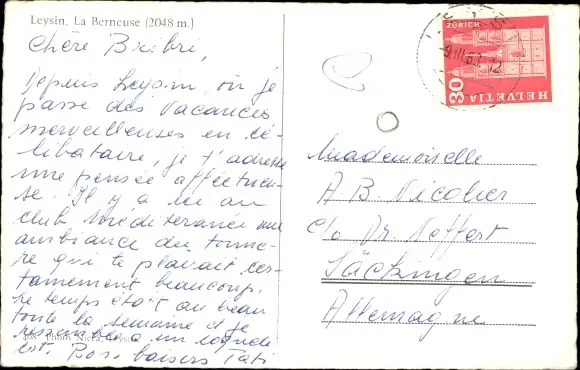 Leysin. La Berneuse (2048 m.)
Chère Bicibri,
Depuis Leysin, où je
passe des vacances
merveilleuses en cé-
libataire, je t'adresse
une pensée affectueu-
se. Il y a ici au
club Méditerranée une
ambiance du tonne-
re qui te plairait cer-
tainement beaucoup.
Le temps était au beau
toute la semaine et je
ressemble à un
est. Bons baisers Tati
Photo Nicca, Leysin
ZÜRICH
30
HELVETIA
-9.III.63.-12
Mademoiselle
A B. Nicolier
c/o Dr. Neffert
Säckingen
Allemagne